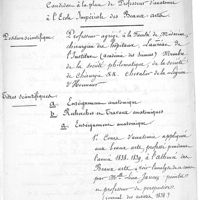 Candidature à la place de Professeur d'anatomie
à l'Ecole Impériale des Beaux-arts
Position scientifique. Professeur agrégé à la Faculté de Médecine,
chirurgien des hôpitaux, Lauréat de
l'Institut (académie des sciences) Membre
de la société philomatique, de la société
de chirurgie &&. Chevalier de la légion
d'Honneur
Titres scientifiques. a. Enseignement anatomique
b. Recherches ou Travaux anatomiques
a. Enseignement anatomique
1. Cours d'anatomie appliquée
aux beaux arts, professé pendant
l'année 1838. 1839, à l'
Beaux arts
par Mr
et professeur de perspective